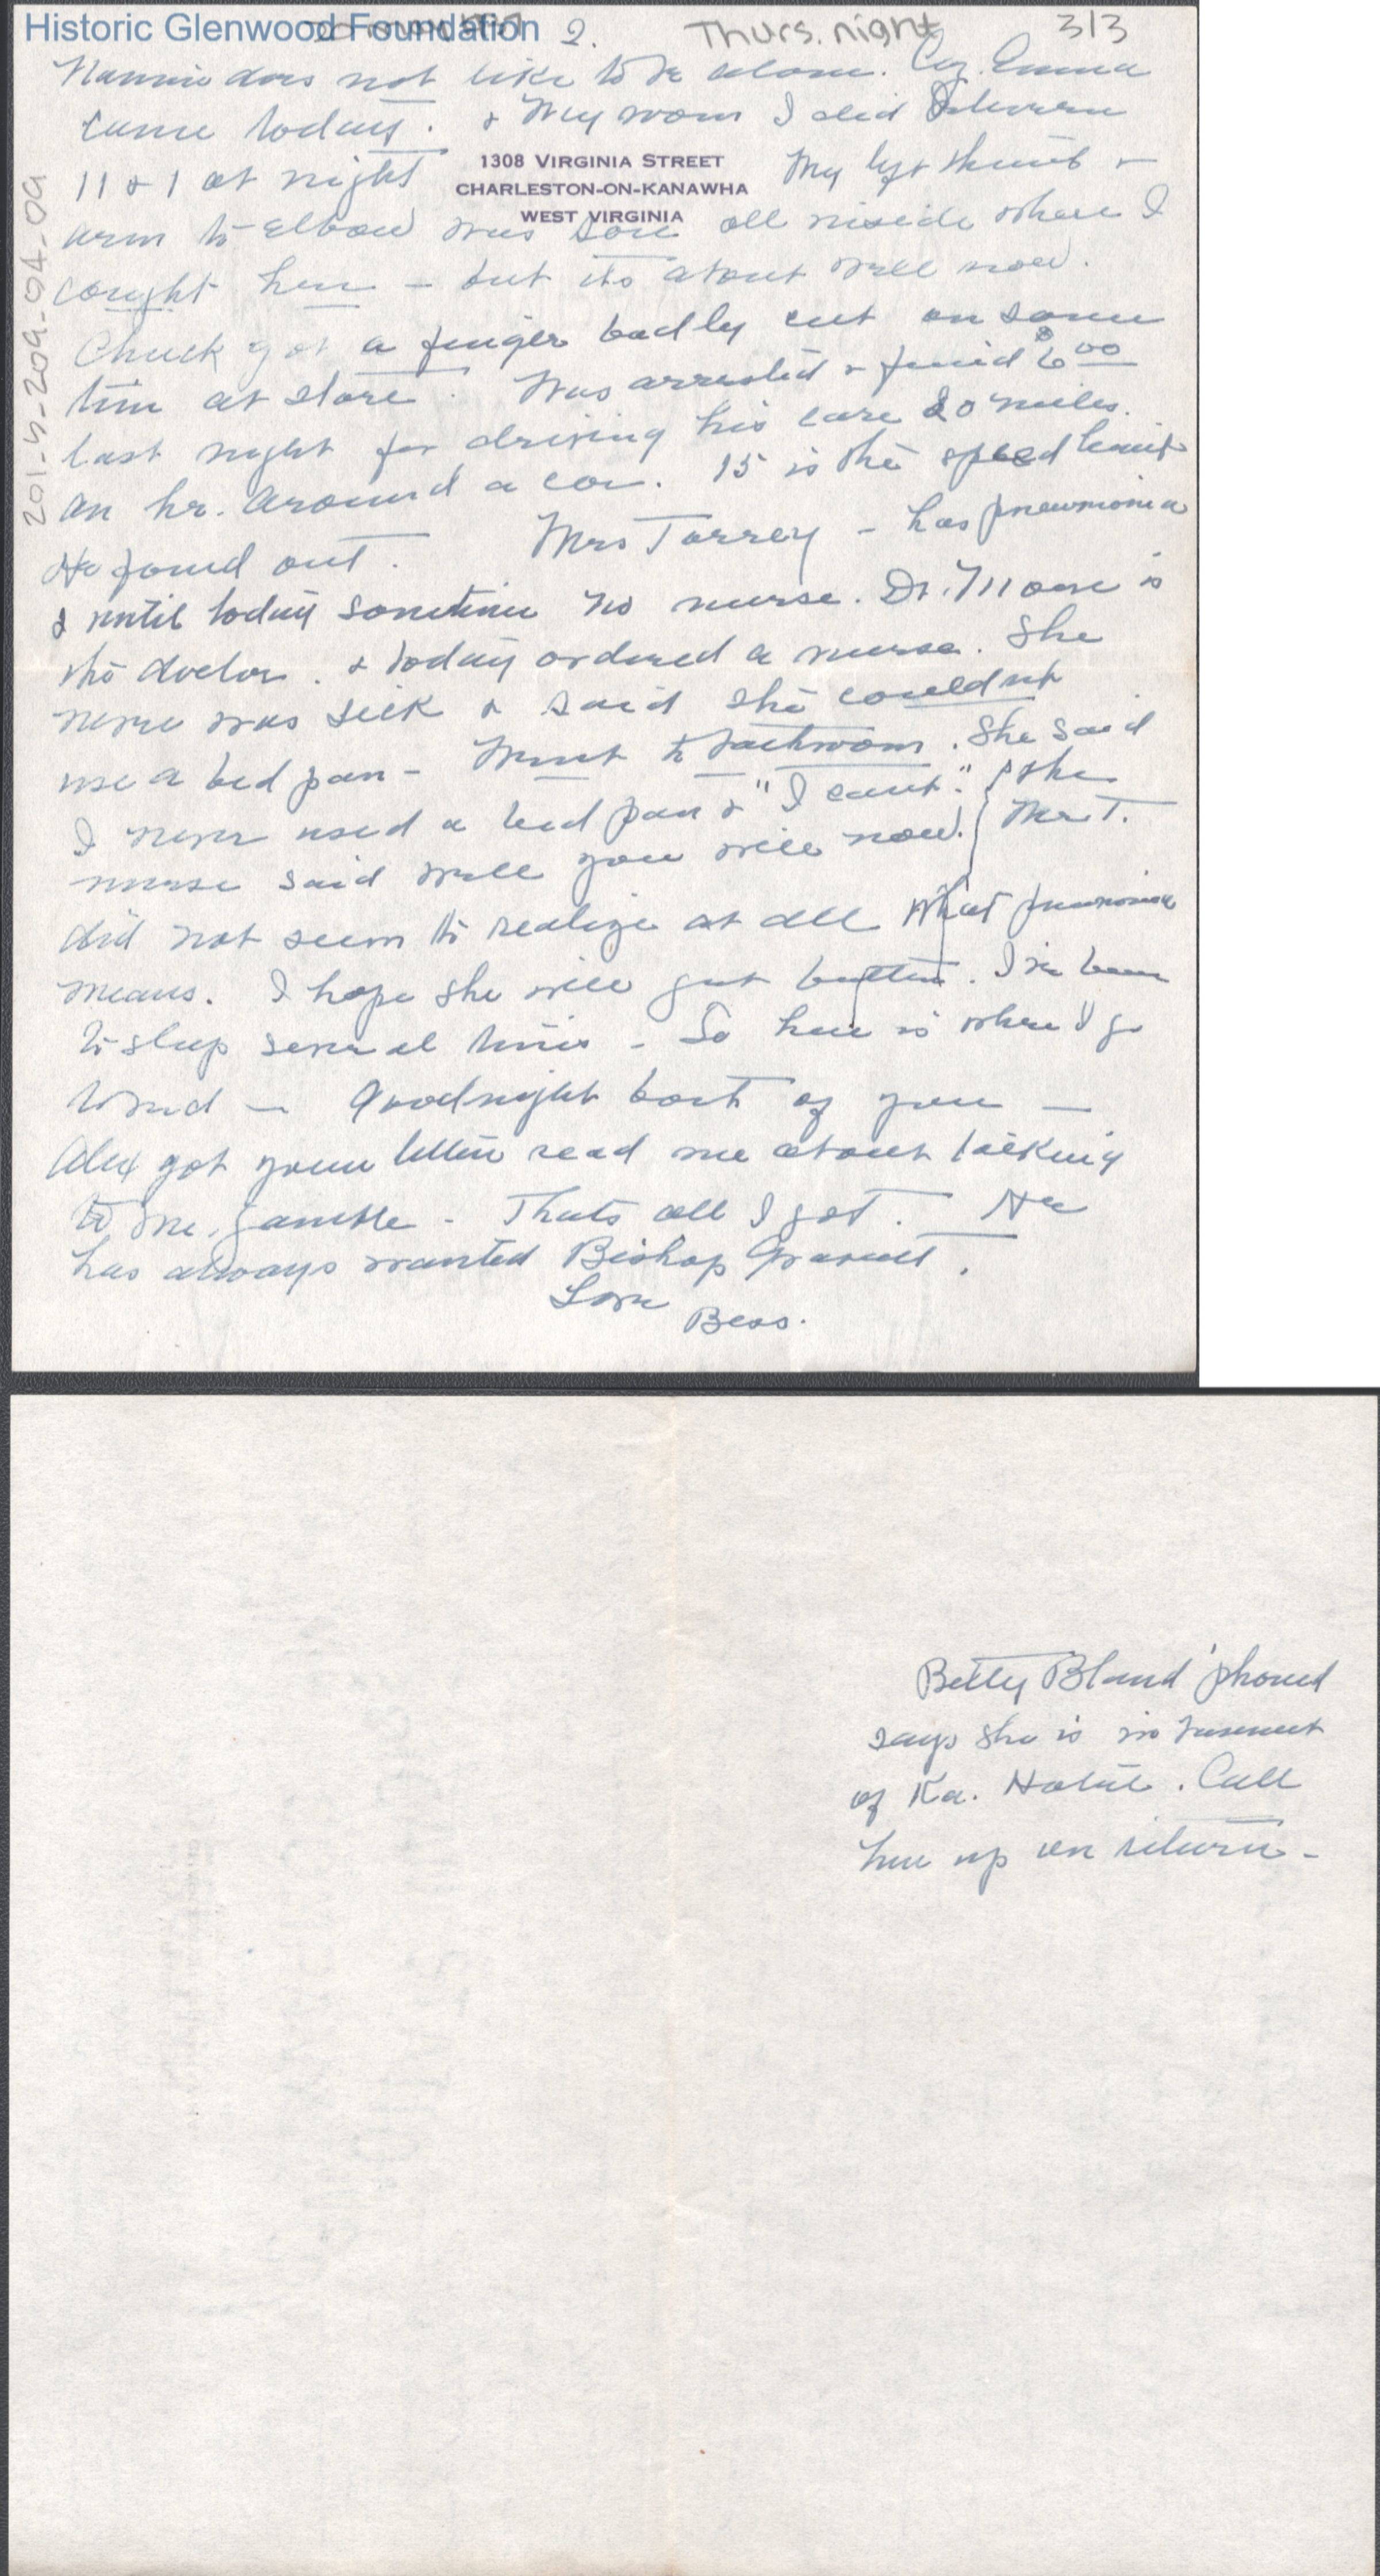 Historic Glenwood Foundation 2. Thurs. night 3/3
Nannie does not like to be alone. Coz. Emma
came today. & My room I did between
1308 VIRGINIA STREET
CHARLESTON-ON-KANAWHA
WEST VIRGINIA
11 & 1 at night My left thumb &
arm to elbow was sore all inside where I
caught her - but its about well now.
201-4-209-04-09
Chuck got a finger badly cut on some
tin at store. Was arrested & fined $6 00
last night for driving his care 20 miles.
an hr. around a cor. 15 is the speed limit
He found out. Mrs Torrey - has pneumonia
& until today sometime no nurse. Dr. Moore is
the doctor. & today ordered a nurse. She
never was sick & said she couldnt
use a bed pan - Went to bathroom. She said
I never used a bed pan & "I cant." the
nurse said well you will now. Mrs T.
did not seem to realize at all what pneumonia
means. I hope she will get better. I've been
to sleep several times - So here is where I go
to bed - Goodnight both of you -
Alex got your letter read me about talking
to Mr. Gamble - Thats all I got. He
has always wanted Bishop Gravatt.
Love
Bess.
Betty Bland 'phoned
says she is in basement
of Ka. Hotel. Call
her up on return -